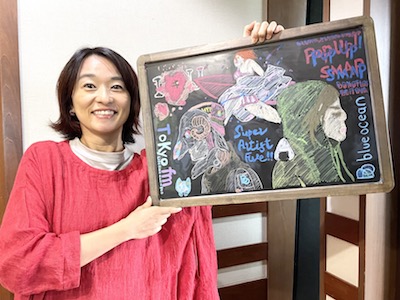 POP UP!
SMAP
Tokyo fm
Super
Artist
Five!!
blue ocean